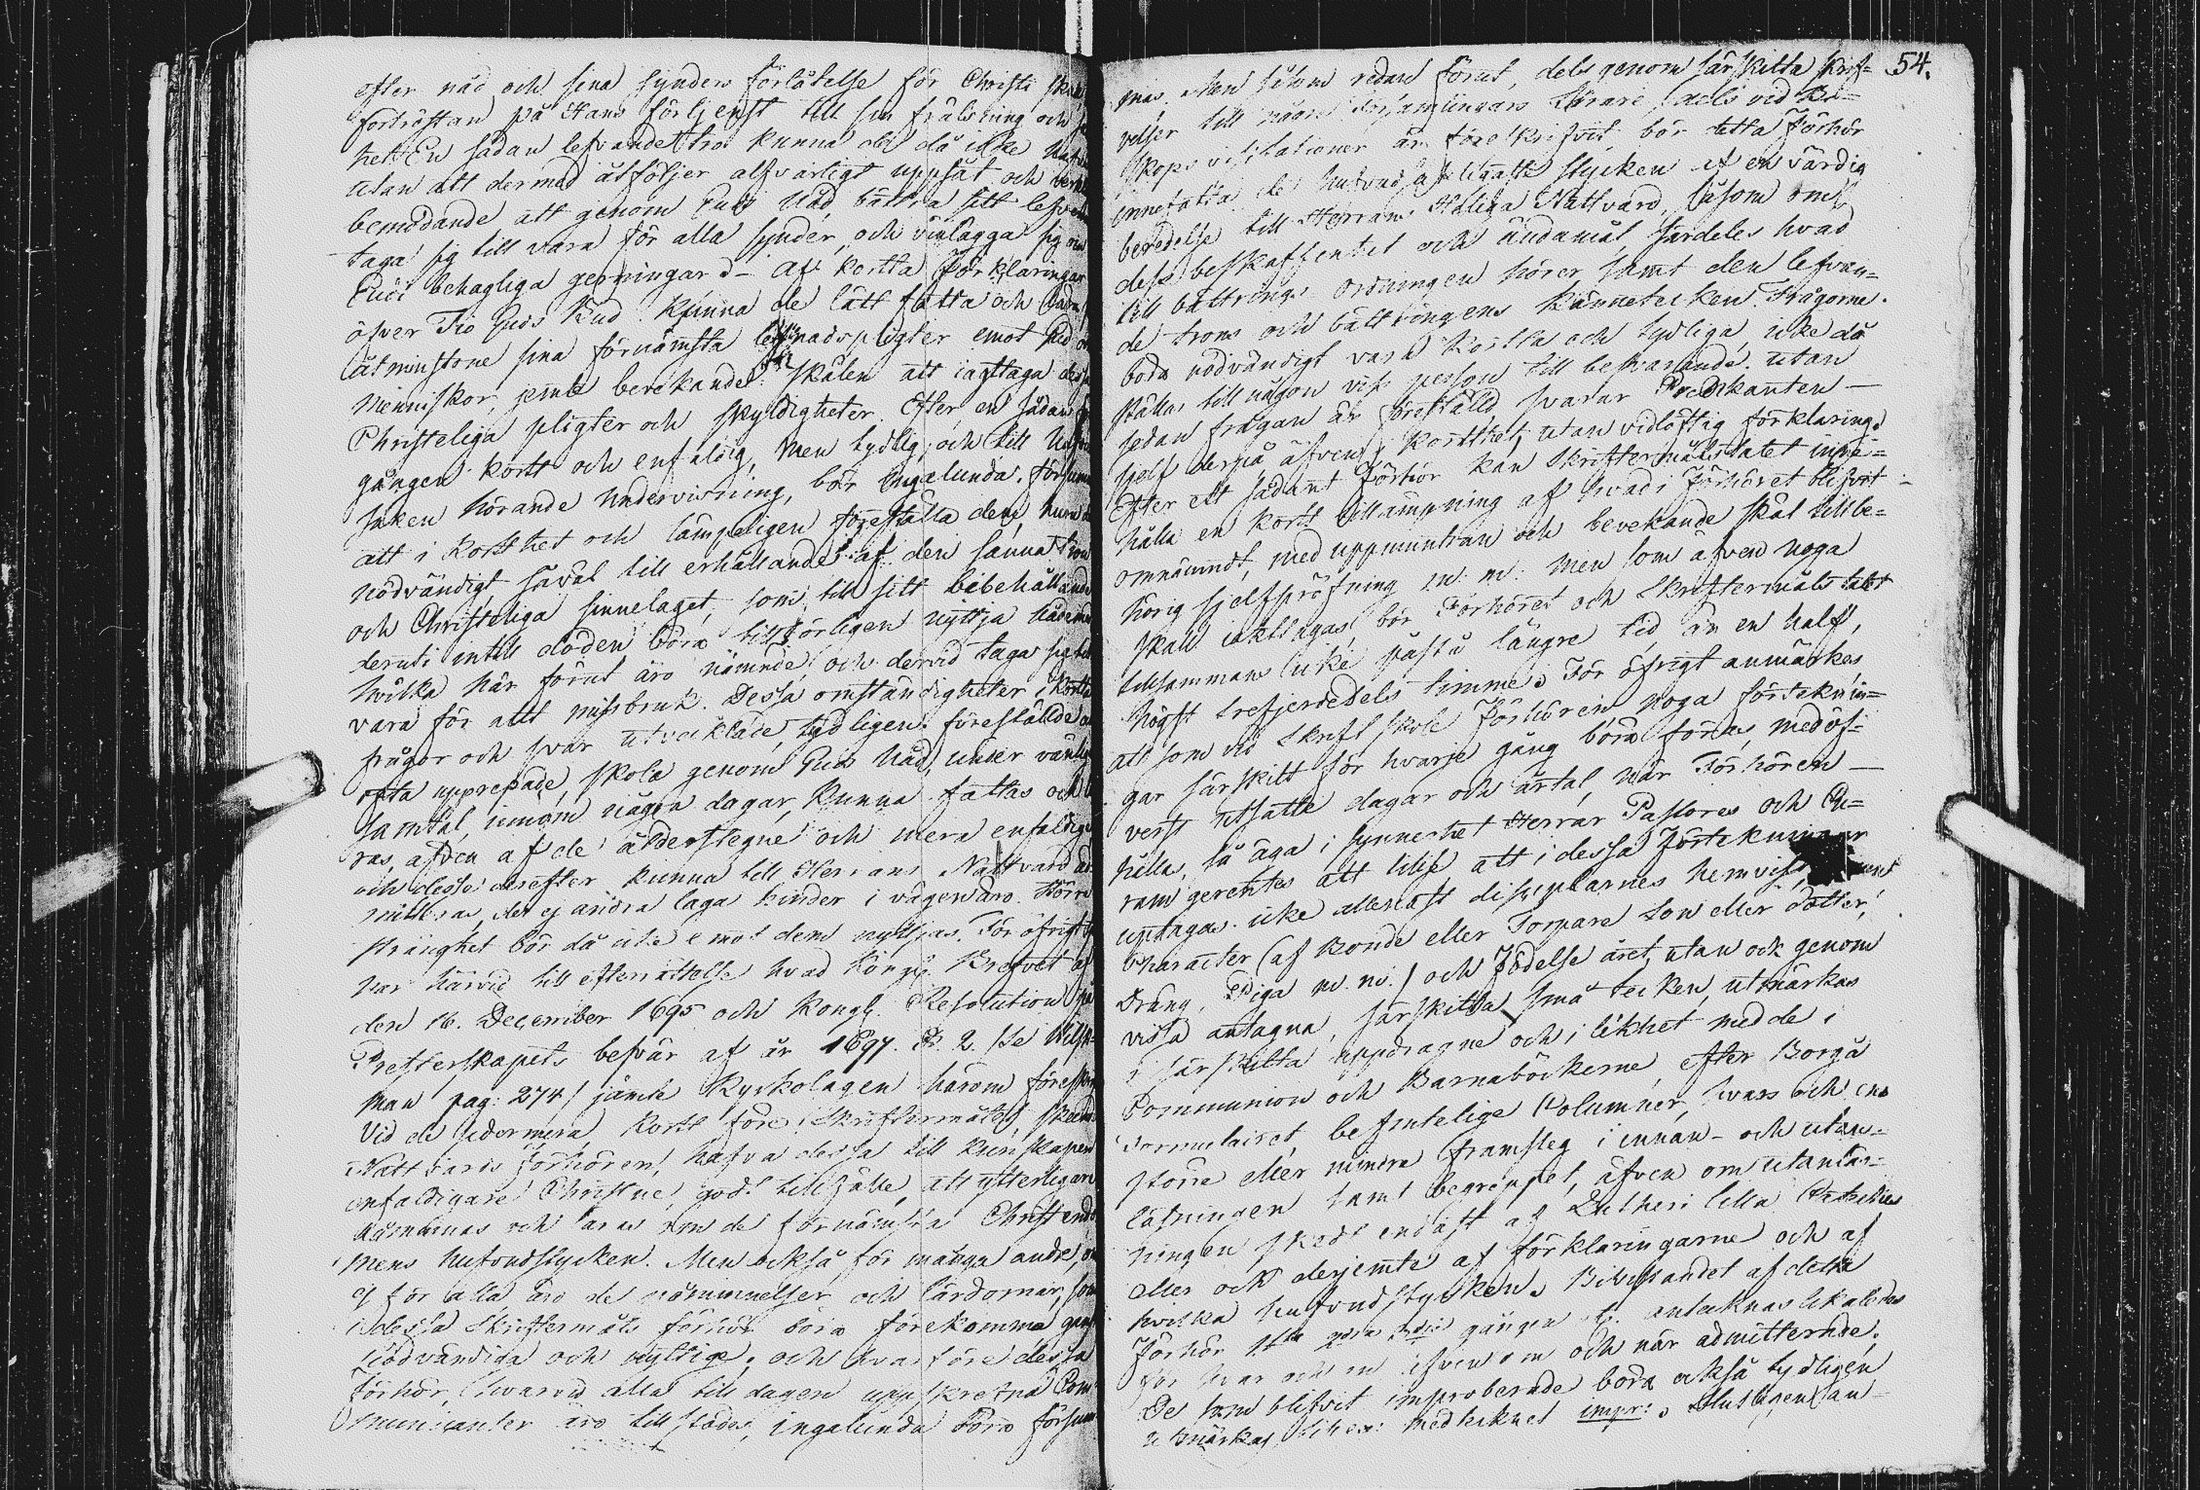 efter nåd och sina synders förlåtelse för Christi
förtröstan på Hans förtjenst till sin frälsning och
het. En sådan lefvande tro kunna de då icke
utan att dermed åtföljer alfvarligt uppsåt och
bemödande att genom Guds Nåd bättra sitt
taga sig till vara för alla synder och vinlägga sig om
Gudi behagliga gerningar. Af korta Förklaringar
öfver Tio Guds Bud kunna de lätt fatta och
åtminstone sina förnämsta lefnadspligter emot Gud
menniskor, jemte bevekande skälen att iagttaga
Christeliga pligter och skyldigheter. Efter en sådan
gången kort och enfaldig, men tydlig och till
saken hörande undervisning, bör ingalunda
att i korthet och lämpeligen föreställa dem, huru
nödvändigt såväl till erhållande af den sanna tron
och Christeliga sinnelaget, som till sitt bibehållande
deruti intill döden böra nyttja
hvilka här förut äro nämnde, och dervid taga sig till
vara för allt missbruk. Dessa omständigheter i korta
frågor och svar utvecklade, tydligen föreställde
ofta upprepade, skola genom Guds Nåd, under
samtal, innom några dagar, kunna fattas och
ras, äfven af de ålderstegne och mera enfaldiga
och desse derefter kunna till Herrans Nattvard
mitteras, der ej andra laga hinder i vägen äro. Större
stränghet bör då icke emot dem nyttjas. För öfrigt
har härvid till efterrättelse hvad Kongl. Brefvet af
den 16. December 1695 och Kongl. Resolution på
Presterskapets besvär af år 1697. §. 2. /Se
man pag: 274/ jämte Kyrkolagen härom
Vid de sedermera kort före Skriftermålet,
Nattvards förhören, hafva dessa till kunskapen
enfaldigare Christne godt tillfälle, att ytterligare
och läras om de förnämsta Christendo-
mens hufvudstycken. Men också för många andre,
ej för alla äro de påminnelser och lärdomar, som
i dessa Skriftermåls förhör böra förekomma
nödvändiga och nyttige; och hvarföre dessa
Förhör, hvarvid alla till dagen uppskrefna Com-
municanter äro tillstädes, ingalunda böra försum-
54.
mas. Men såsom redan förut, dels genom särskilta skrif-
velser till våra Församlingars Lärare, dels vid Bi-
skops visitationer är föreskrifvit, bör detta förhör
innefatta de hufvudsakligaste stycken af en värdig
beredelse till Herrans Heliga Nattvard, såsom om
dess beskaffenhet och ändamål, särdeles hvad
till bättrings ordningen hörer samt den lefvan-
de trons och bättringens kännetecken. Frågorne
böra nödvändigt vara korta och tydliga, icke då
ställas till någon viss person till besvarande, utan
sedan frågan är föreställd, svarar Predikanten
sjelf derpå äfven i korthet, utan vidlöftig förklaring.
Efter ett sådant Förhör kan Skriftermålstalet inne-
hålla en kort tillämpning af hvad i Förhöret blifvit
omnämndt, med uppmuntran och bevekande skäl till be-
hörig sjelfpröfning m: m: men som äfven noga
skall iakttagas, bör Förhöret och Skriftermåls talet
tillsammans icke påstå längre tid än en half,
högst trefjerdedels timme. För öfrigt anmärkes
att som vid Skriftskole Förhören noga förteknin-
gar särskilt för hvarje gång böra föras, med öf-
verst utsatte dagar och årtal, när Förhören
hållas, så äga i synnerhet Herrar Pastores och
att tillse att i dessa Förtekningar
upptagas icke allenast disciplarnes hemvist,
Character (af Bonde eller Torpare Son eller Dotter,
Dräng, Piga m. m.) och Födelse året, utan ock genom
vissa antagna, särskilta små tecken, utmärkas
i särskilta uppdragne och i likhet med de i
Communion och Barnaböckerne, efter Borgå
Formulairet, befintelige Columner, hvars och ens
större eller mindre framsteg i innan- och utan-
läsningen samt begreppet, äfven om utanläs-
ningen skedt endast af Lutheri lilla Catechies
eller ock derjemte af förklaringarne och af
hvilka hufvudstycken. Bevistandet af detta
Förhör 1sta gången &c. antecknas likaledes
för hvar och en, äfven om och när admitterade.
De som blifvit improberade böra också tydligen
utmärkas med tecknet impr: Slutligen an-